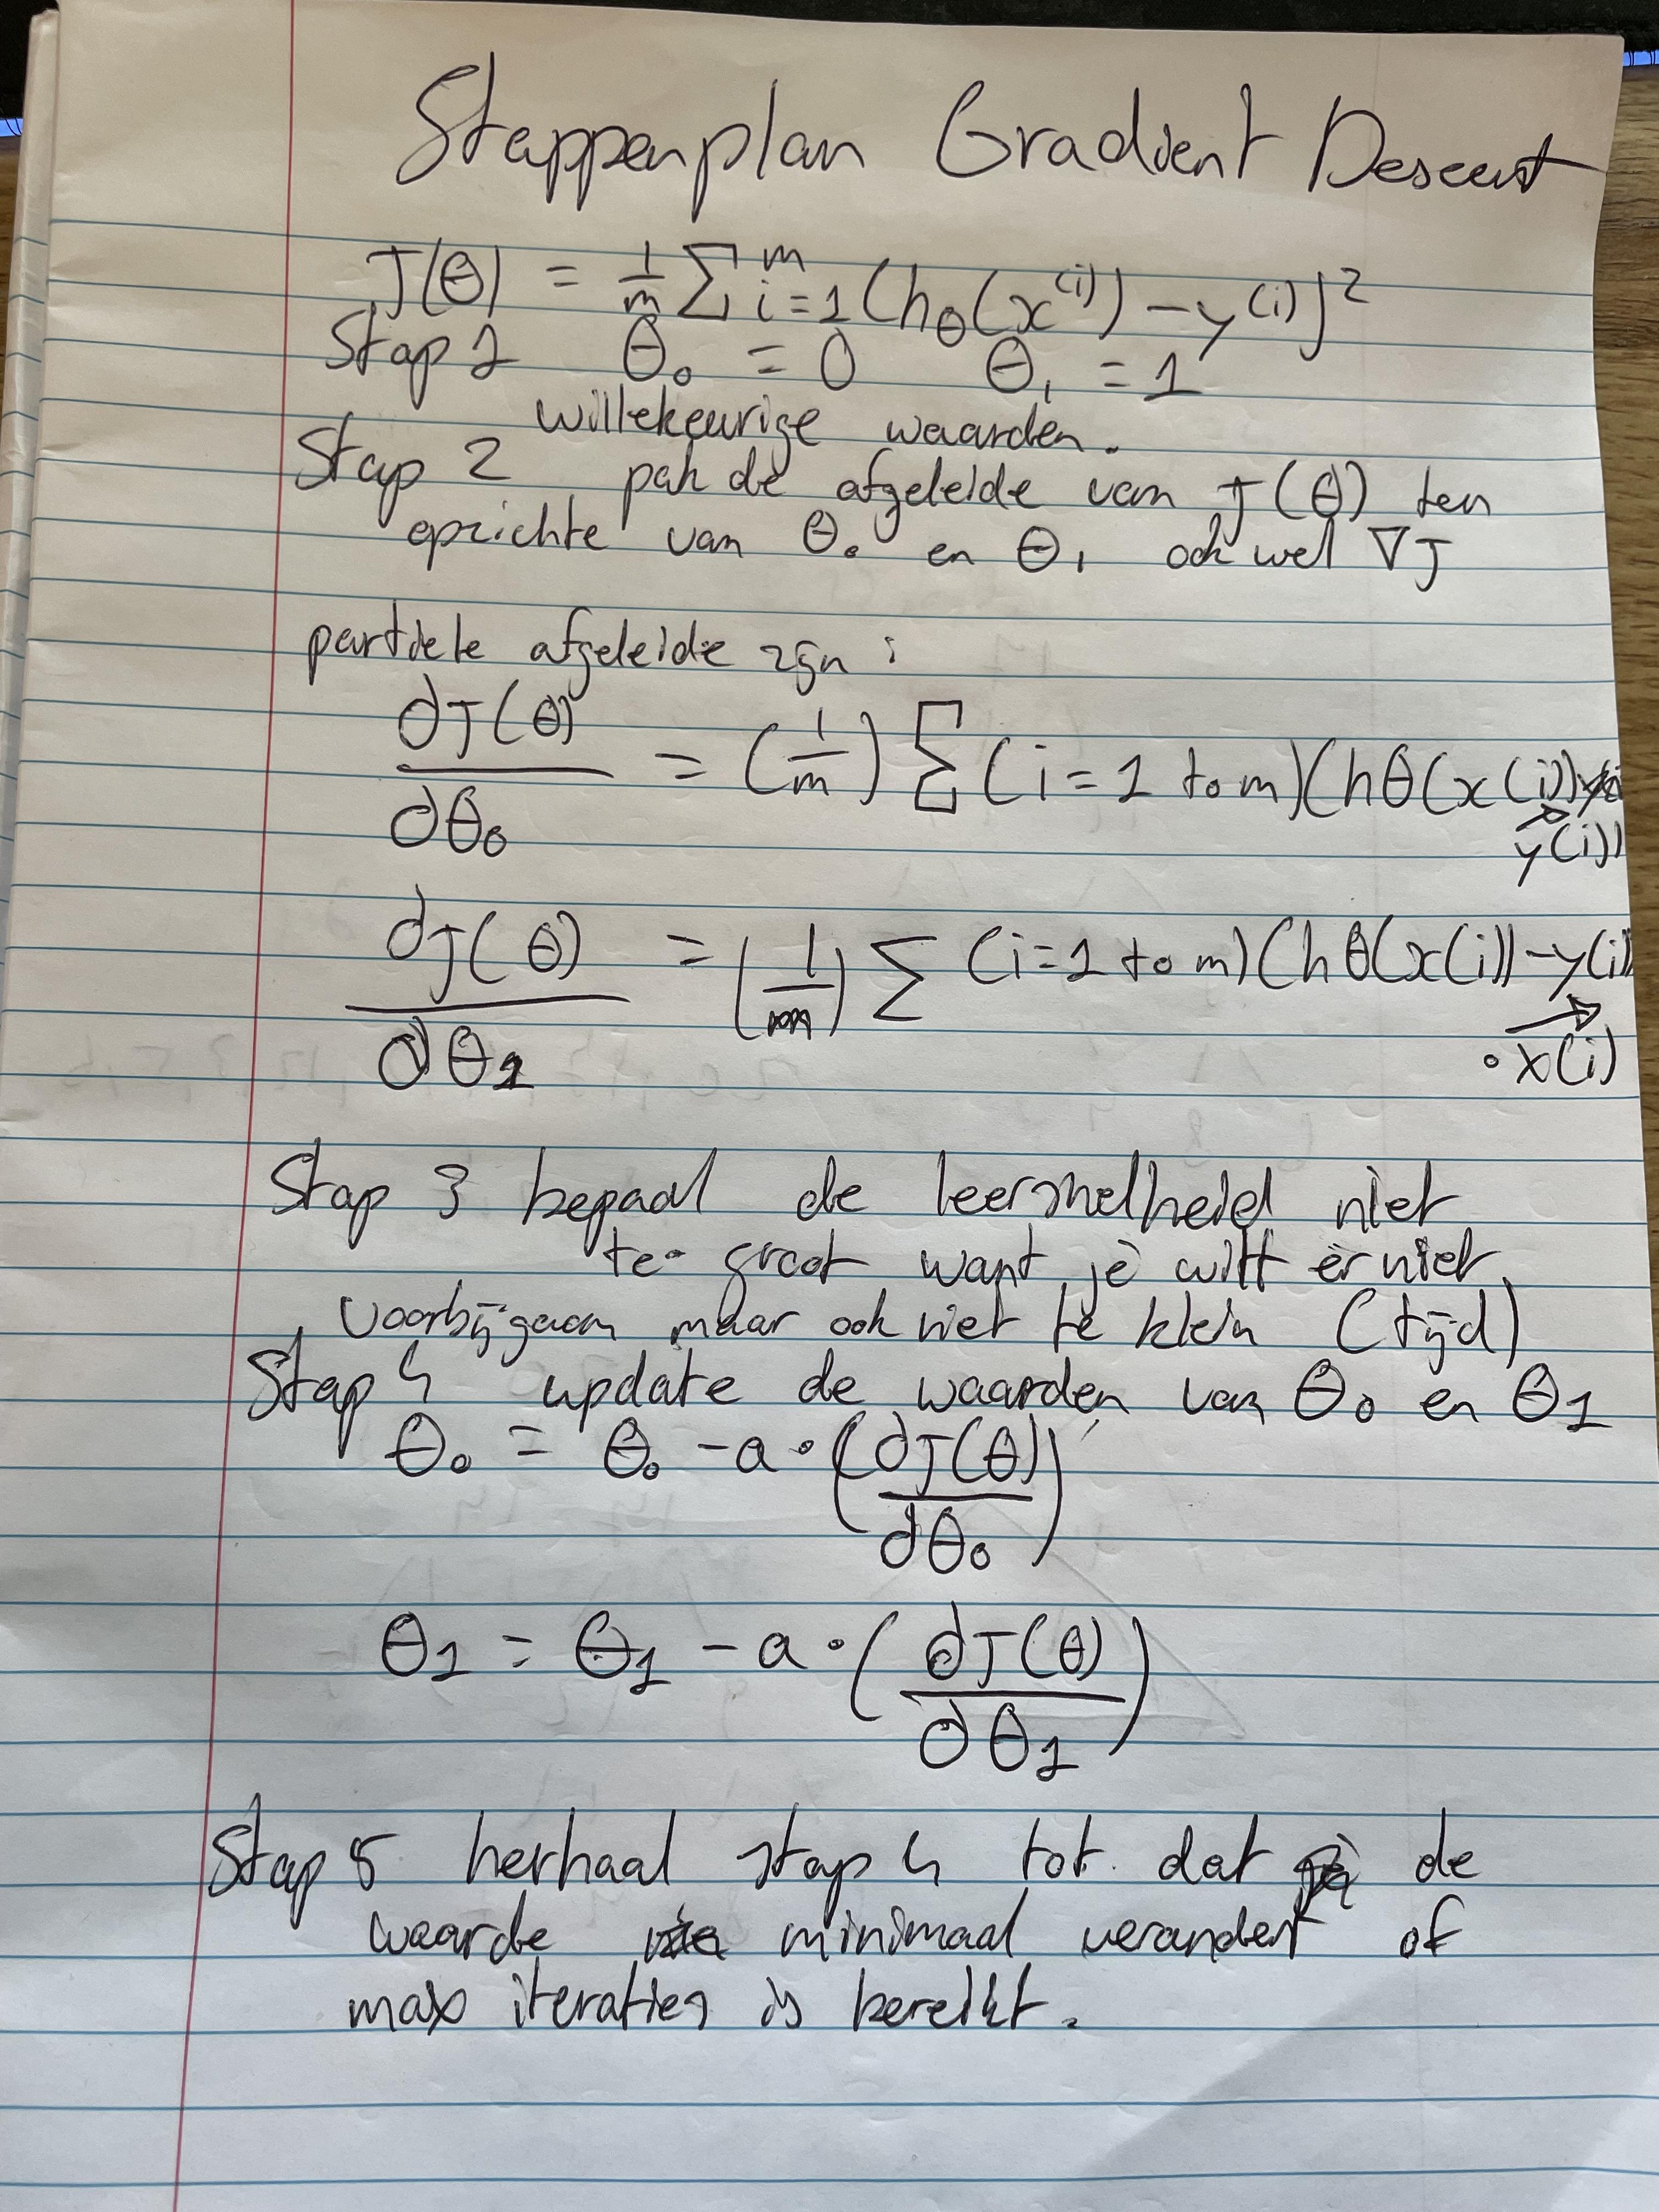 Stappenplan Gradient Descent
J(θ) = 1/m Σ i=1 m (hθ(x(i)) - y(i))²
Stap 1 θ0 = 0 θ1 = 1
willekeurige waarden.
Stap 2 pak de afgeleide van J(θ) ten
opzichte van θ0 en θ1 ook wel ∇J
partiele afgeleide zijn :
dJ(θ)/dθ0 = (1/m) Σ (i=1 to m)(hθ(x(i))
→ y(i))
dJ(θ)/dθ1 = (1/m) Σ (i=1 to m)(hθ(x(i)) - y(i))
→ · x(i)
Stap 3 bepaal de leersnelheid niet
te groot want je wilt er niet
voorbijgaan maar ook niet te klein (tijd)
Stap 4 update de waarden van θ0 en θ1
θ0 = θ0 - a · (dJ(θ)/dθ0)
θ1 = θ1 - a · (dJ(θ)/dθ1)
Stap 5 herhaal stap 4 tot dat de
waarde minimaal verandert of
max iteraties is bereikt.